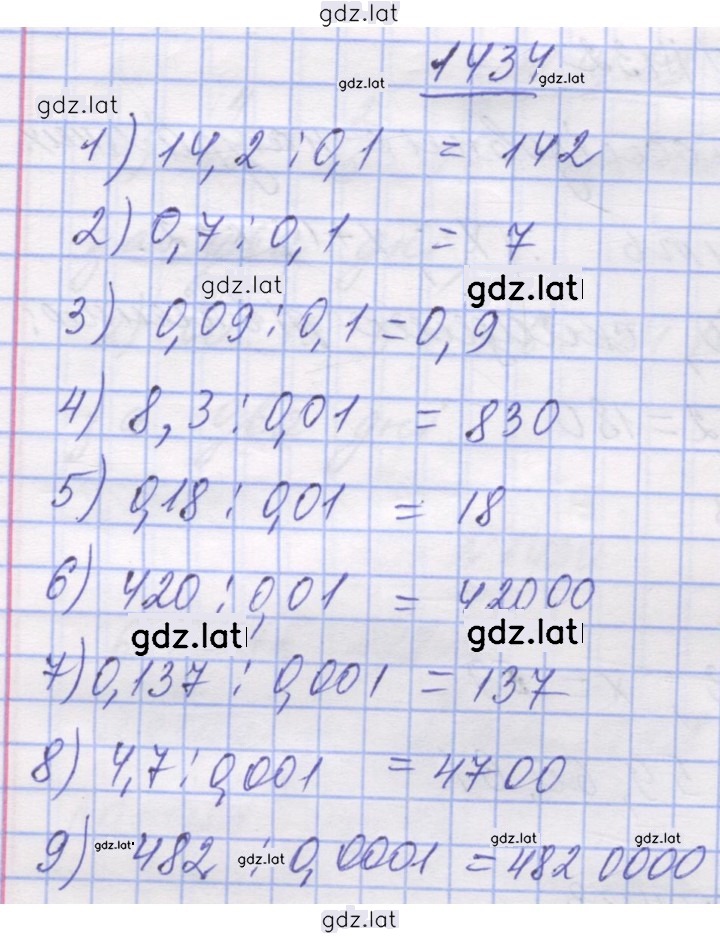 gdz.lat
1434
gdz.lat gdz.lat
gdz.lat
1) 14,2 : 0,1 = 142
2) 0,7 : 0,1 = 7
gdz.lat gdz.lat
3) 0,09 : 0,1 = 0,9
4) 8,3 : 0,01 = 830
5) 0,18 : 0,01 = 18
6) 420 : 0,01 = 42000
gdz.lat gdz.lat
7) 0,137 : 0,001 = 137
8) 4,7 : 0,001 = 4700
gdz.lat gdz.lat gdz.lat gdz.lat
9) 482 : 0,0001 = 482 0000
gdz.lat